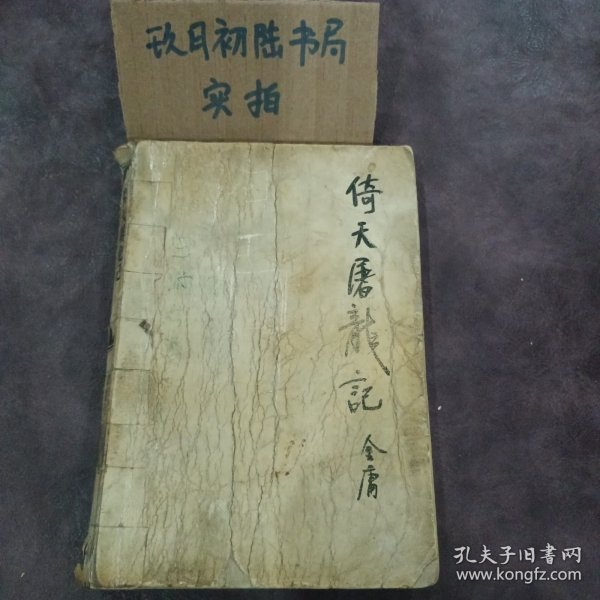 玖月初陆书局
实拍
倚天屠龍記
金庸
孔夫子旧书网
www.kongfz.com